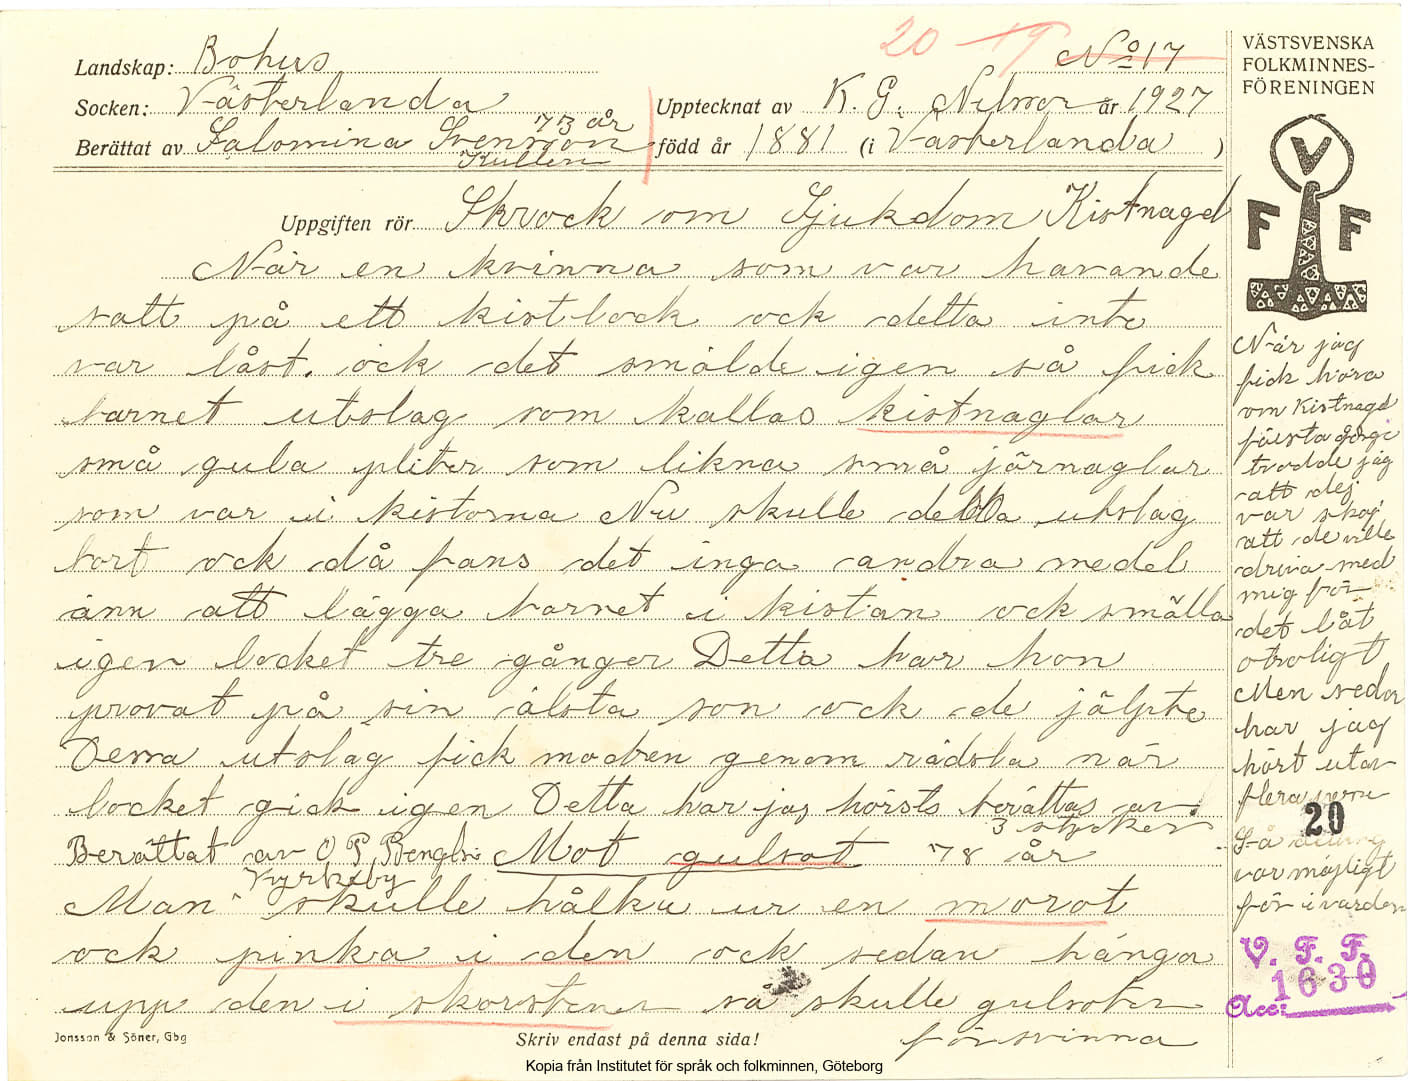 20 19 No 17
Landskap: Bohus
Socken: Västerlanda
Upptecknat av K. G. Nilsson år 1927
Berättat av Salomina Svensson 73 år
Kullen
född år 1881 (i Västerlanda )
Uppgiften rör Skrock om Sjukdom Kistnagel
När en kvinna som var havande
satt på ett kistlock ock detta inte
var låst. ock det smälde igen så fick
barnet utslag som kallas kistnaglar
små gula pliter som likna små järnaglar
som var i kistorna Nu skulle detta utslag
bort ock då fans det inga andra medel
änn att lägga barnet i kistan ock smälla
igen locket tre gånger Detta har hon
provat på sin älsta son ock de jälpte
Dessa utslag fick modren genom rädsla när
locket gick igen Detta har jag hörsts berättas av
3 stycker
Berättat av O P Bengts Mot gulsot 78 år
Man skulle hålka ur en morot
ock pinka i den ock sedan hänga
upp den i skorstenen så skulle gulsoten
försvinna
Jonsson & Söner, Gbg
Skriv endast på denna sida!
VÄSTSVENSKA
FOLKMINNES-
FÖRENINGEN
V
F F
När jag
fick höra
om Kistnagel
första gånge
trodde jag
att dej
var skoj
att de ville
driva med
mig för
det låt
otroligt
Men sedan
har jag
hört utav
flera
20
Så
var möjligt
för i varden
V. F. F.
1630
Acc:
Kopia från Institutet för språk och folkminnen, Göteborg